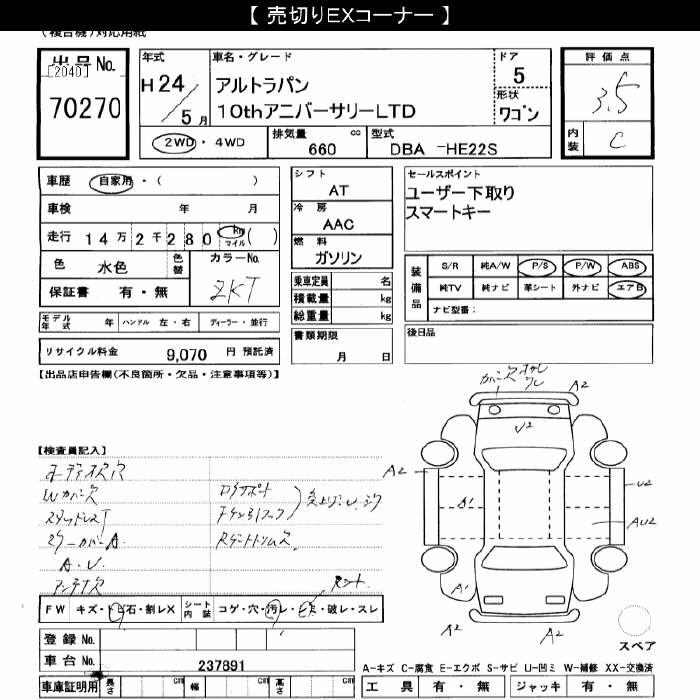 【 売切りEXコーナー 】
(複合機)対応用紙
出品No.
[2040]
70270
年式
H 24 / 5 月
車名・グレード
アルトラパン
10thアニバーサリーLTD
ドア
5
形状
ワゴン
評価点
3.5
内装
C
2WD・4WD
排気量
660 cc
型式
DBA -HE22S
車歴 自家用・( )
車検 年 月
走行 14万2千280 km マイル ( )
色 水色 色替
カラーNo.
ZKT
保証書 有・無
シフト
AT
冷房
AAC
燃料
ガソリン
乗車定員 名
積載量 kg
総重量 kg
書類期限
月 日
セールスポイント
ユーザー下取り
スマートキー
装備品
S/R 純A/W P/S P/W ABS
純TV 純ナビ 革シート 外ナビ エアB
ナビ型番:
後日品
モデル年式 年 ハンドル 左・右 ディーラー・並行
リサイクル料金 9,070 円 預託済
【出品店申告欄(不良箇所・欠品・注意事項等)】
【検査員記入】
オーディオス穴
Wカバー欠
スタッドレスT
ステーカバーA
A・U
アンテナ欠
カバー欠
A2
U2
A2
A1
U2
AU2
A1
A2
A2
FW キズ・トビ石・割レX
シート内装
コゲ・穴・汚レ・欠・破レ・スレ
登録No.
車台No.
237891
車庫証明用 長さ cm 幅 cm 高さ cm
スペア
A-キズ C-腐食 E-エクボ S-サビ U-凹ミ W-補修 XX-交換済
工具 有・無 ジャッキ 有・無